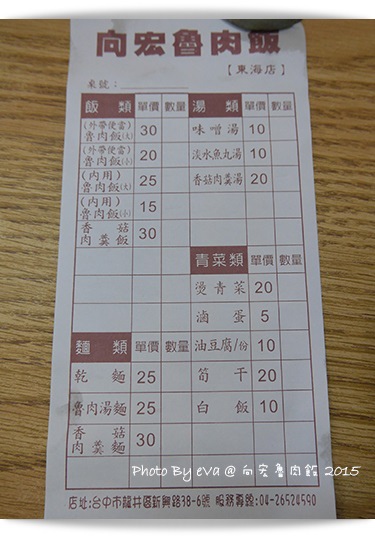 向宏魯肉飯
【東海店】
桌號：
飯類 單價 數量 湯類 單價 數量
(外帶便當)魯肉飯(大) 30 味噌湯 10
(外帶便當)魯肉飯(小) 20 淡水魚丸湯 10
(內用)魯肉飯(大) 25 香菇肉羹湯 20
(內用)魯肉飯(小) 15
香菇肉羹飯 30
青菜類 單價 數量
燙青菜 20
滷蛋 5
麵類 單價 數量 油豆腐/份 10
乾麵 25 筍干 20
魯肉湯麵 25 白飯 10
香菇肉羹麵 30
Photo By eva @ 向宏魯肉飯 2015
店址:台中市龍井區新興路38-6號 服務專線:04-26524590